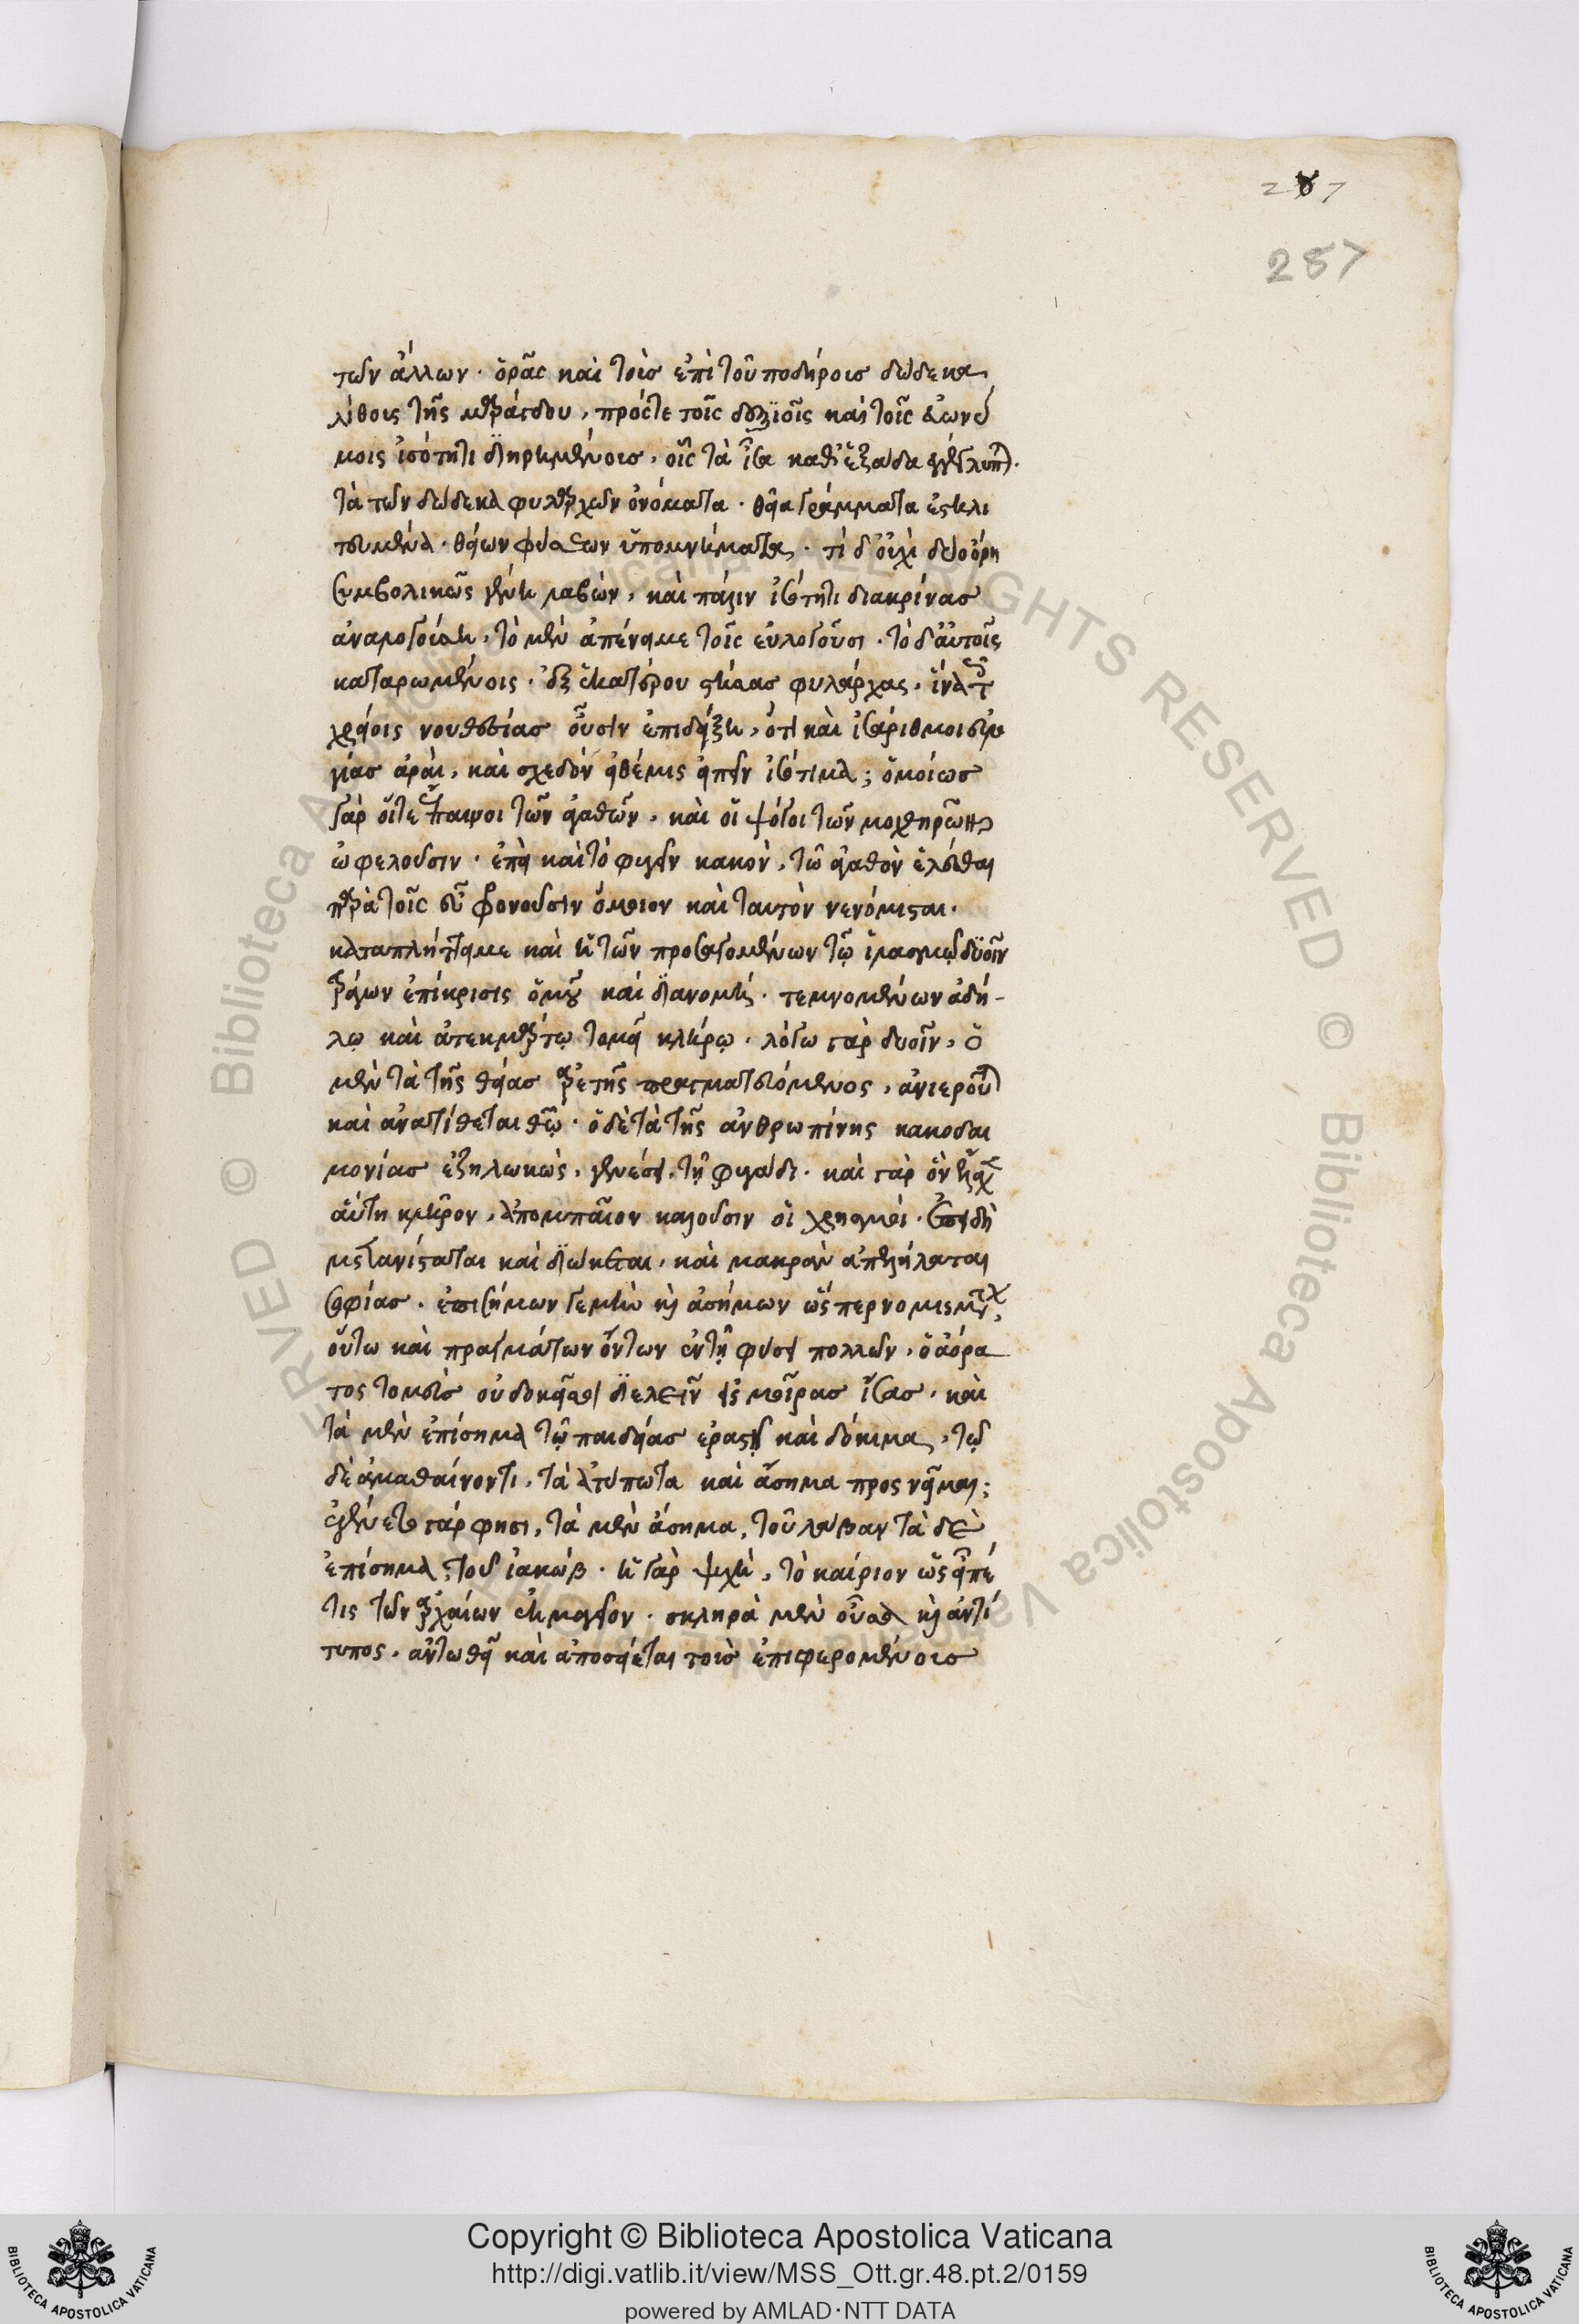 287
287
των ἄλλων · ὁρᾶς καὶ τοὺς ἐπὶ τοῦ ποδήρους δώδεκα
λίθους τῆς σμαράγδου, πρός τε τοῖς δεξιοῖς καὶ τοῖς εὐωνύ
μοις ἰσότητι διῃρημένους, οἷς τὰ ἴσα καθ' ἑξάδα ἐγγέγλυπται.
τὰ τῶν δώδεκα φυλάρχων ὀνόματα · θεῖα γράμματα ἐστηλι
τευμένα · θείων φύσεων ὑπομνήματα · τί δ' οὐχὶ δύο ὄρη
συμβολικῶς γένη λαβὼν, καὶ πάλιν ἰσότητι διακρίνας
ἀναλογούσῃ, τὸ μὲν ἀπένειμε τοῖς εὐλογοῦσι · τὸ δ' αὐτοῖς
καταρωμένοις · ἓξ ἑκατέρου στήσας φυλάρχας, ἵνα τοῖς
χρείοις νουθεσίας οὖσιν ἐπιδείξῃ, ὅτι καὶ ἰσάριθμοι εὐλο
γίαις ἀραὶ, καὶ σχεδὸν εἰ θέμις εἰπεῖν ἰσότιμα; ὁμοίως
γὰρ οἵ τε ἔπαινοι τῶν ἀγαθῶν, καὶ οἱ ψόγοι τῶν μοχθηρῶν
ὠφελοῦσιν · ἐπεὶ καὶ τὸ φυγεῖν κακὸν, τῷ ἀγαθὸν ἑλέσθαι
παρὰ τοῖς εὖ φρονοῦσιν ὅμοιον καὶ ταυτὸν νενόμισται.
καταπλήττει με καὶ ἡ τῶν προσαγομένων τῷ ἱλασμῷ δυοῖν
τράγων ἐπίκρισις ὁμοῦ καὶ διανομὴ · τεμνομένων ἀδή-
λῳ καὶ ἀτεκμάρτῳ τομεῖ κλήρῳ · λόγω γὰρ δυοῖν, ὁ
μὲν τὰ τῆς θείας ἀρετῆς πραγματευόμενος, ἀνιεροῦται
καὶ ἀνατίθεται θεῷ · ὁ δὲ τὰ τῆς ἀνθρωπίνης κακοδαι
μονίας ἐζηλωκὼς, γενέσει τῇ φυγάδι · καὶ γὰρ ὃν ἔλαχεν
αὕτη κλῆρον, ἀποπομπαῖον καλοῦσιν οἱ χρησμοί · ἐπειδὴ
μετανίσταται καὶ διώκεται, καὶ μακρὰν ἀπελήλαται
σοφίας · ἐπισήμων γε μὴν καὶ ἀσήμων ὥσπερ νομισμάτων,
οὕτω καὶ πραγμάτων ὄντων ἐν τῇ φύσει πολλῶν, ὁ ἀόρα
τος τομεὺς οὐ δοκεῖ σοι διελεῖν εἰς μοίρας ἴσας · καὶ
τὰ μὲν ἐπίσημα τῷ παιδείας ἐραστῇ καὶ δόκιμα, τῷ
δὲ ἀμαθαίνοντι, τὰ ἀτύπωτα καὶ ἄσημα προσνεῖμαι;
ἐγένετο γάρ φησι, τὰ μὲν ἄσημα, τοῦ λάβαν τὰ δὲ
ἐπίσημα, τοῦ ἰακώβ · ἡ γὰρ ψυχὴ, τὸ καίριον ὡς εἶπέ
τις τῶν ἀρχαίων ἐκμαγεῖον · σκληρὰ μὲν οὖσα καὶ ἀντί
τυπος, ἀντωθεῖ καὶ ἀποσείεται τοὺς ἐπιφερομένους
Copyright © Biblioteca Apostolica Vaticana
http://digi.vatlib.it/view/MSS_Ott.gr.48.pt.2/0159
powered by AMLAD·NTT DATA